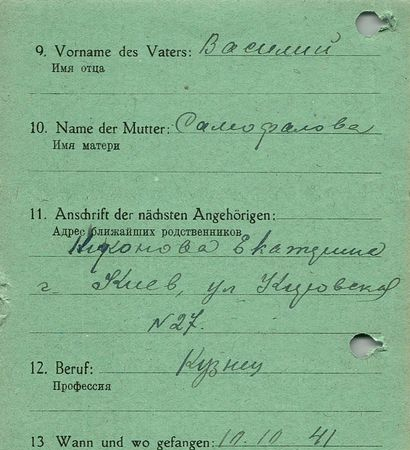 9. Vorname des Vaters: Василий
Имя отца
10. Name der Mutter: Самофалова
Имя матери
11. Anschrift der nächsten Angehörigen:
Адрес ближайших родственников
Екатерина
г. Киев, ул Кировская
N 27.
12. Beruf: Кузнец
Профессия
13 Wann und wo gefangen: 10.10 41